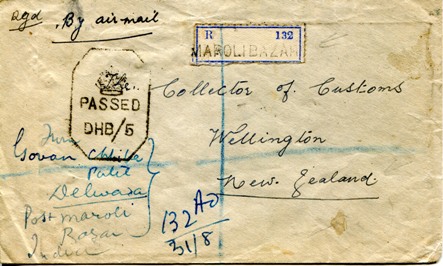 Rgd. By air-mail
R 132
MAROLI BAZAR
PASSED
DHB/5
The Collector of Customs
Wellington
New Zealand
From
Govan Chiba
Patel
Delwada
Post maroli
Bazar
India
132 AD
31/8